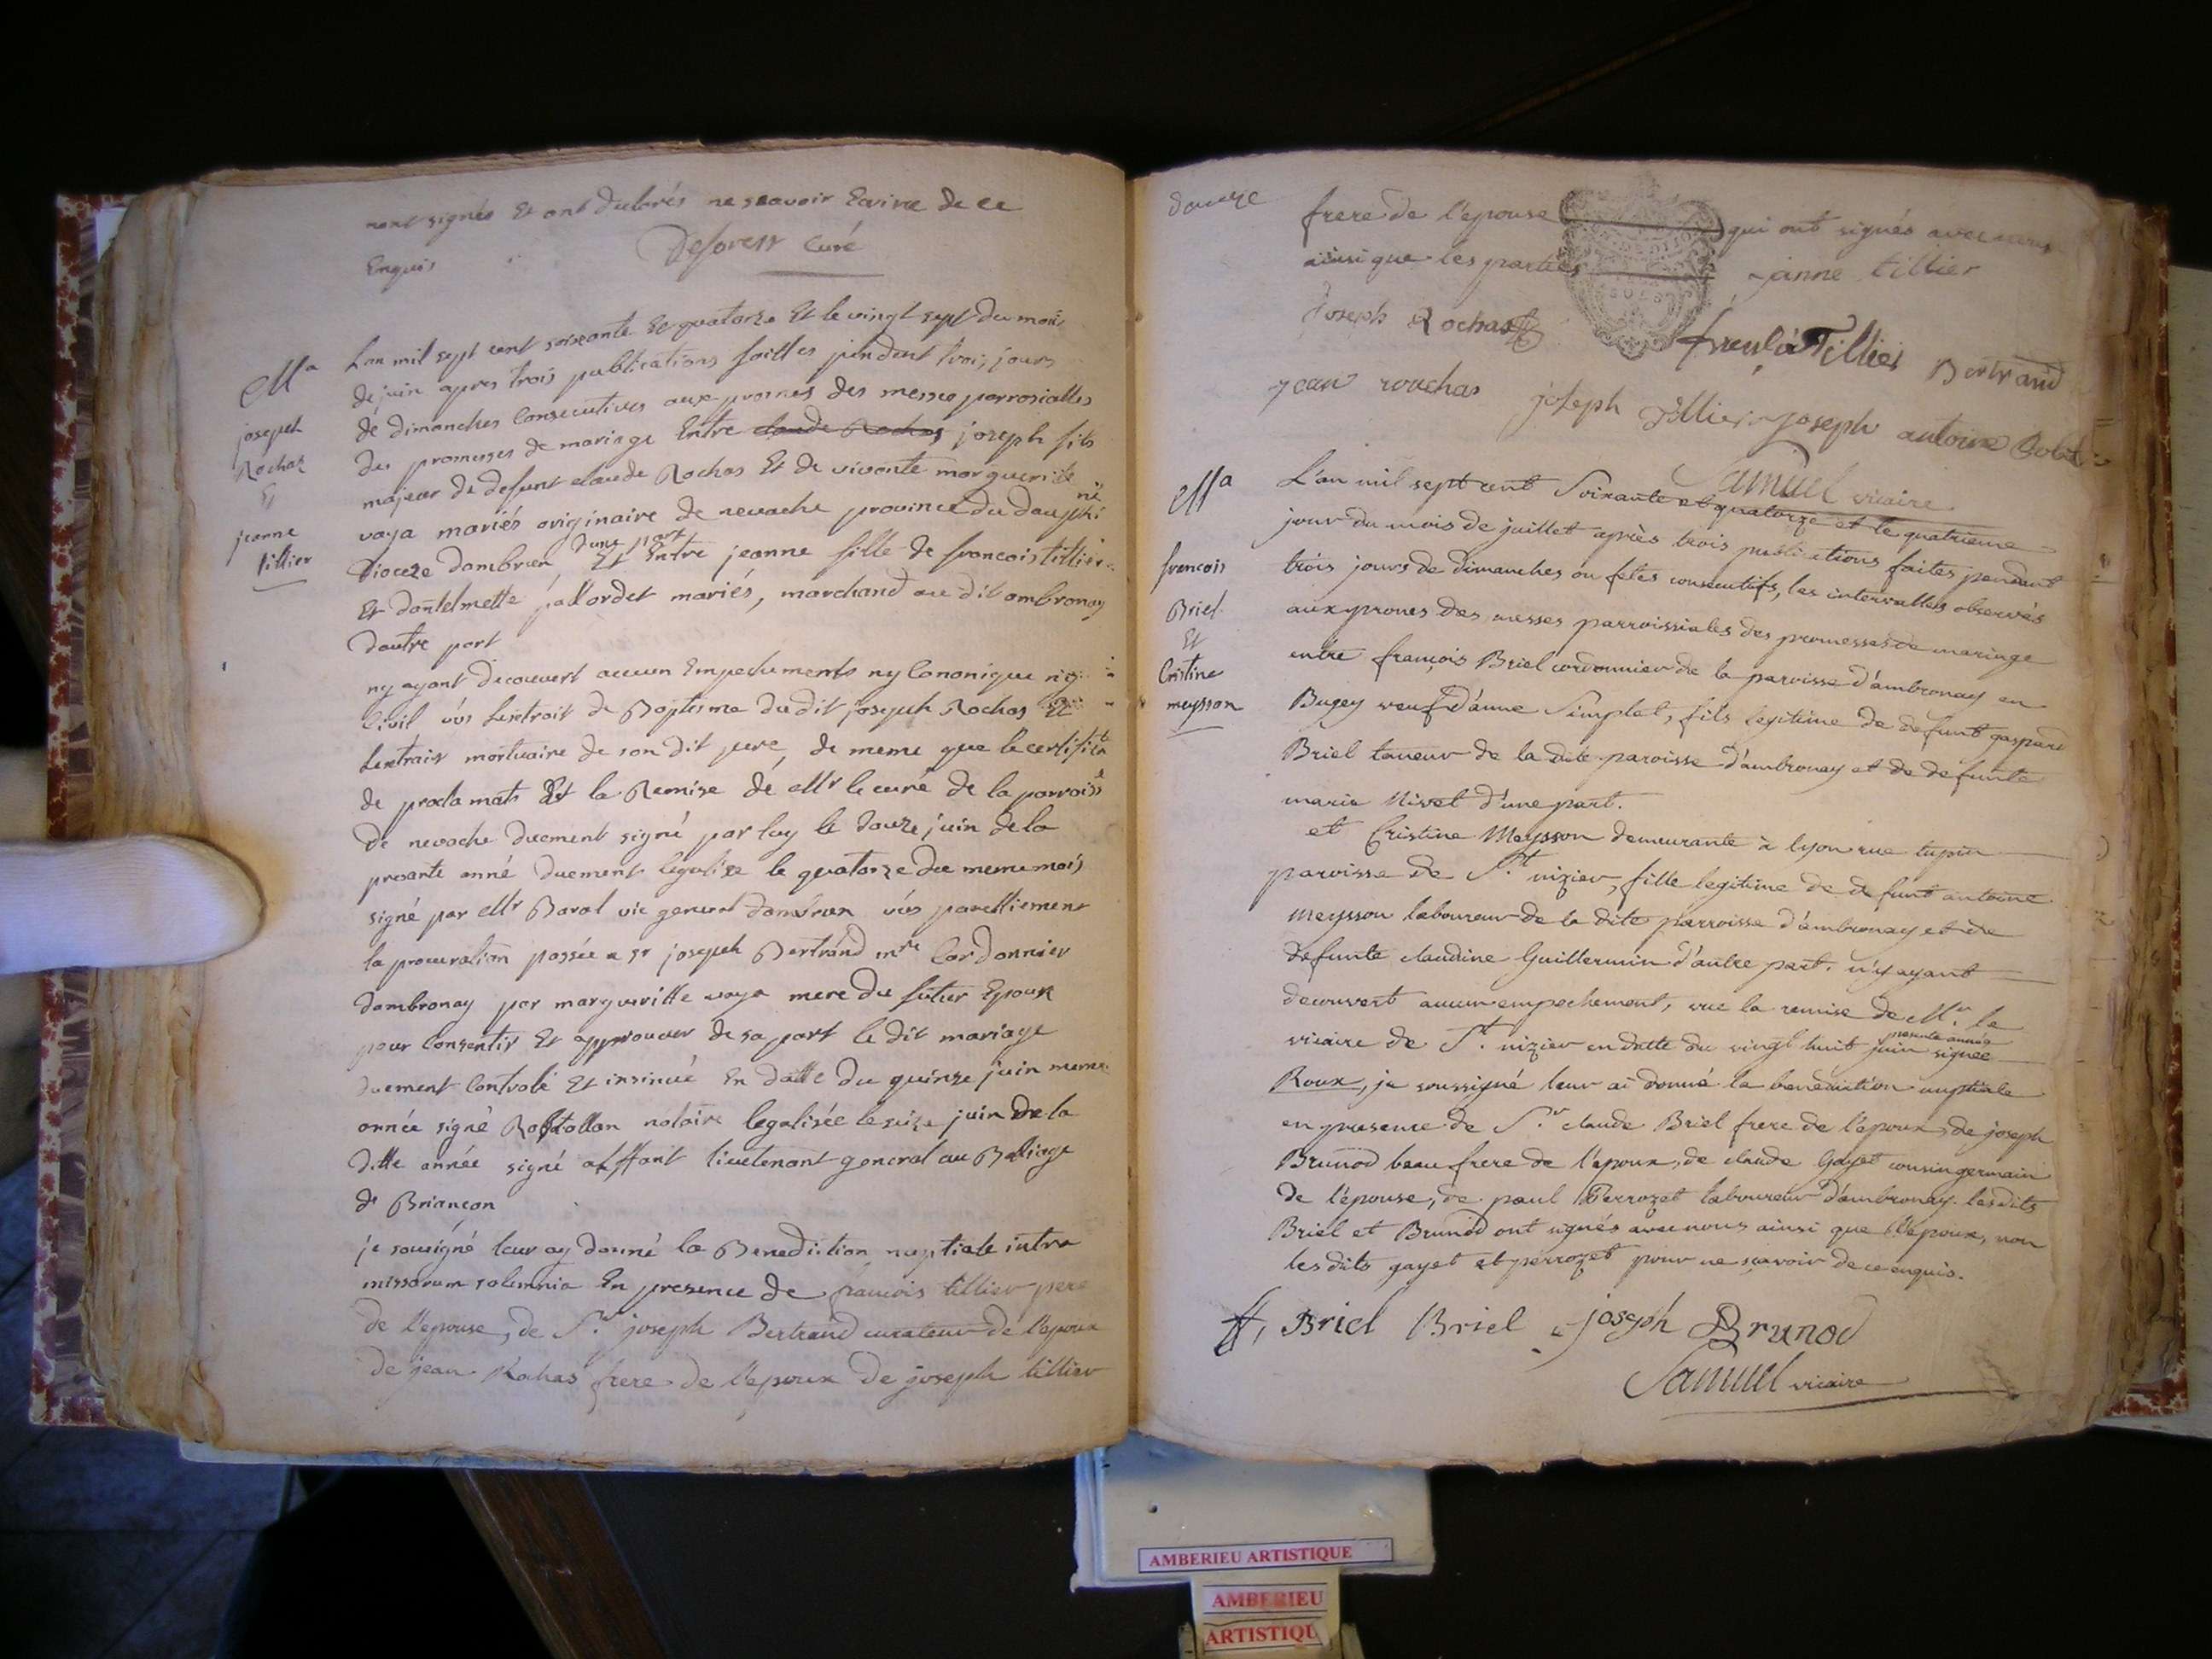 nont signés Et ont declarés ne scavoir Ecrire de ce
Enquis
Deforest Curé
Ma
joseph
Rochas
Et
jeanne
tillier
Lan mil sept cent soixante Et quatorze Et le vingt sept du mois
de juin apres trois publications faittes pendent trois jours
de dimanches Consecutives aux prosnes des messes parrosialles
des promesses de mariage Entre claude Rochas joseph fils
majeur de defunt claude Rochas Et de vivante marguerite
vaya mariés originaire de nevache province du dauphiné
Dioceze dambrun dune part Et Entre jeanne fille de francois tillier
Et dantelmette pallordet mariés, marchand au dit ambronay
dautre part
ny ayant decouvert aucun Empechements ny Canonique ny
Civil vûs Lextrait de Baptisme dudit joseph Rochas Et
Lextrait mortuaire de son dit pere, de meme que le certificat
de proclamats Et la Remise de Mr le curé de la parroisse
de nevache duement signé par luy le douze juin de la
presante anné duement legalise le quatorze du meme mois
signé par Mr Baral vic general dambrun vûs pareilliement
la procuration passée a sr joseph Bertrand mre Cordonnier
dambronay par margueritte vaya mere du futur Epoux
pour Consentir Et approuver de sa part le dit mariage
duement Controlé Et insinué En datte du quinze juin meme
année signé Rostollan notaire legalisée le seize juin de la
ditte année signé alffant lieutenant general au Baliage
de Briançon
je sousigné leur ay donné la Benediction nuptiale intra
missarum solemnia En presence de francois tillier pere
de l'epouse, de Sr. joseph Bertrand curateur de l'epoux
de jean Rochas frere de l'epoux de joseph tillier
douze
frere de l'epouse qui ont signés avec nous
ainsi que les parties janne tillier
Joseph Rochas
Tillier Bertrand
jean rouchas joseph Tillier joseph antoine
Samuel vicaire
Ma
francois
Briel
Et
Cristine
meysson
L'an mil sept cent Soixante et quatorze et le quatrieme
jour du mois de juillet après trois publications faites pendant
trois jours de dimanches ou fetes consecutifs, les intervalles observés
aux prones des messes parroissiales des promesses de mariage
entre françois Briel cordonnier de la paroisse d'ambronay en
Bugey veuf d'anne Simplet, fils legitime de defunt gaspard
Briel taneur de la dite paroisse d'ambronay et de defunte
marie Nivet d'une part.
et Cristine Meysson demeurante à lyon rue tupin
paroisse de St. nizier, fille legitime de defunt antoine
Meysson laboureur de la dite parroisse d'ambronay et de
defunte claudine Guillermin d'autre part. n'y ayant
decouvert aucun empechement, vue la remise de Mr. le
vicaire de St. nizier en datte du vingt huit juin presente année signée
Roux, je soussigné leur ai donné la benediction nuptiale
en presence de Sr. claude Briel frere de l'epoux, de joseph
Brunod beau frere de l'epoux, de claude Gayet cousin germain
de l'épouse, de paul Perrozet laboureur d'ambronay. lesdits
Briel et Brunod ont signés avec nous ainsi que l'epoux, non
lesdits gayet et perrozet pour ne sçavoir de ce enquis.
ff, Briel Briel joseph Brunod
Samuel vicaire
AMBERIEU ARTISTIQUE
AMBERIEU
ARTISTIQU